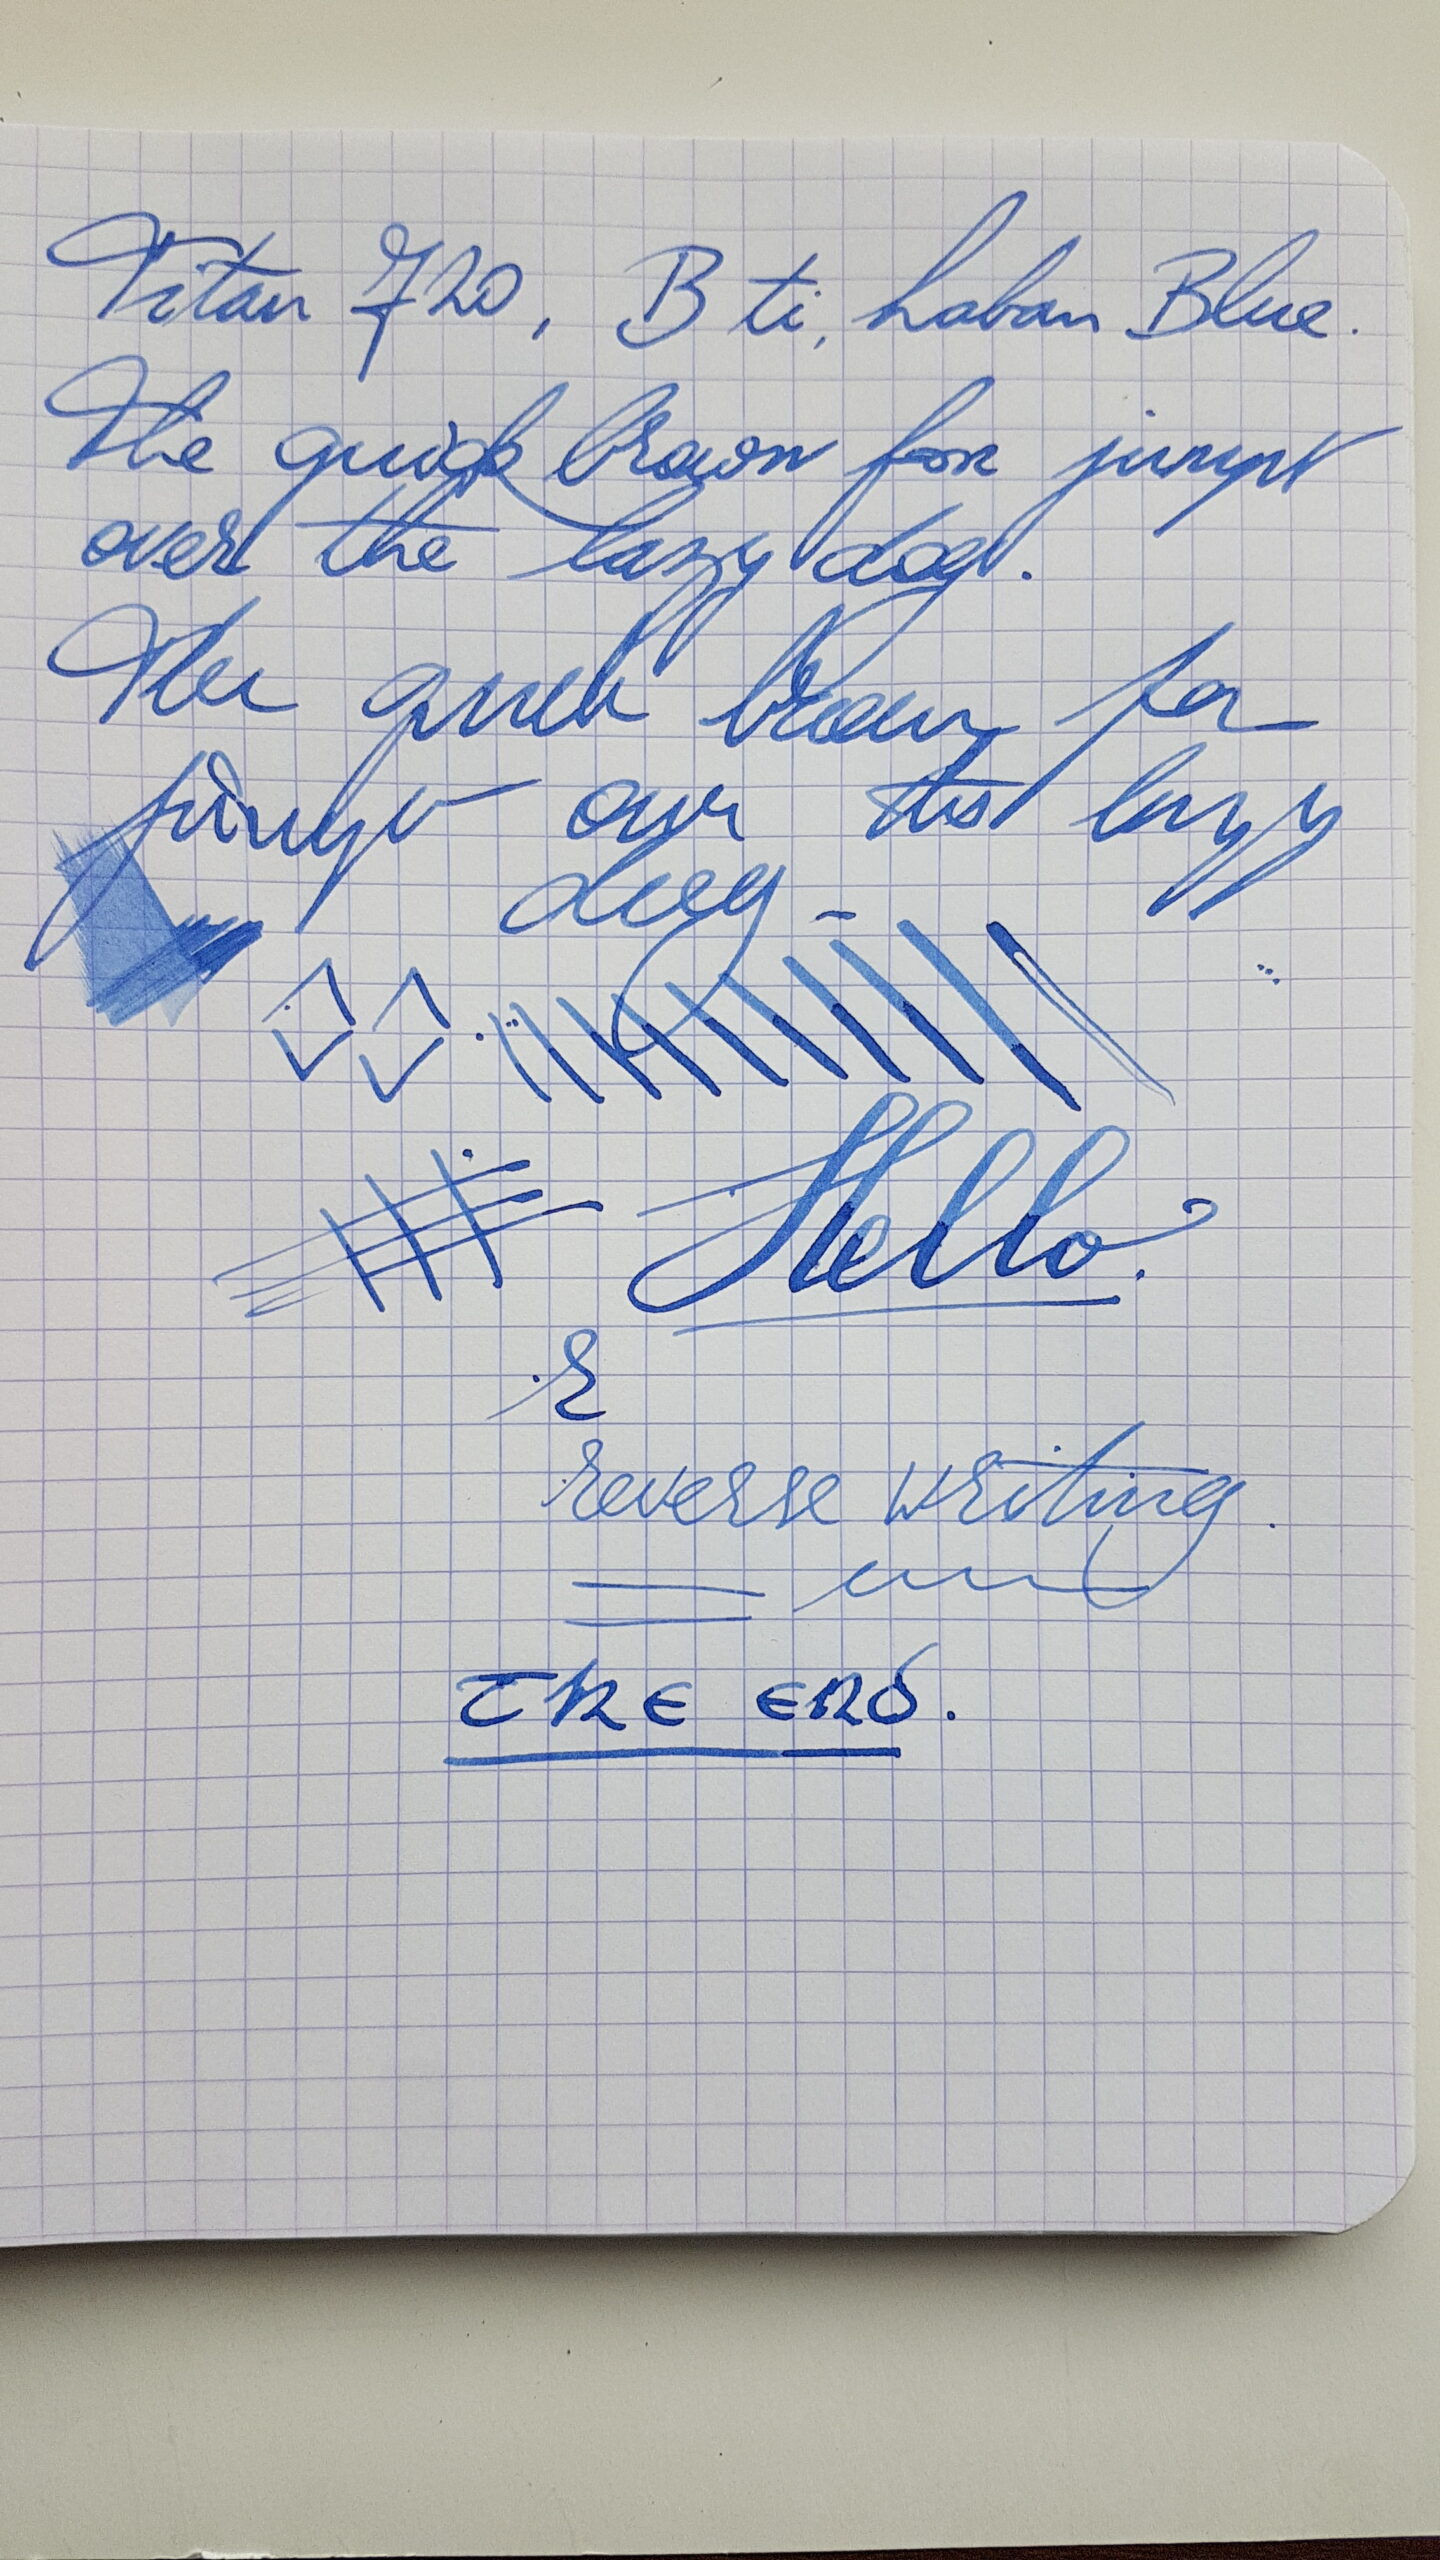 Titan 720, B ti, Laban Blue.
The quick brown fox jumps
over the lazy dog.
The quick brown fox
jumps over the lazy
dog
Hello.
R
reverse writing.
THE END.